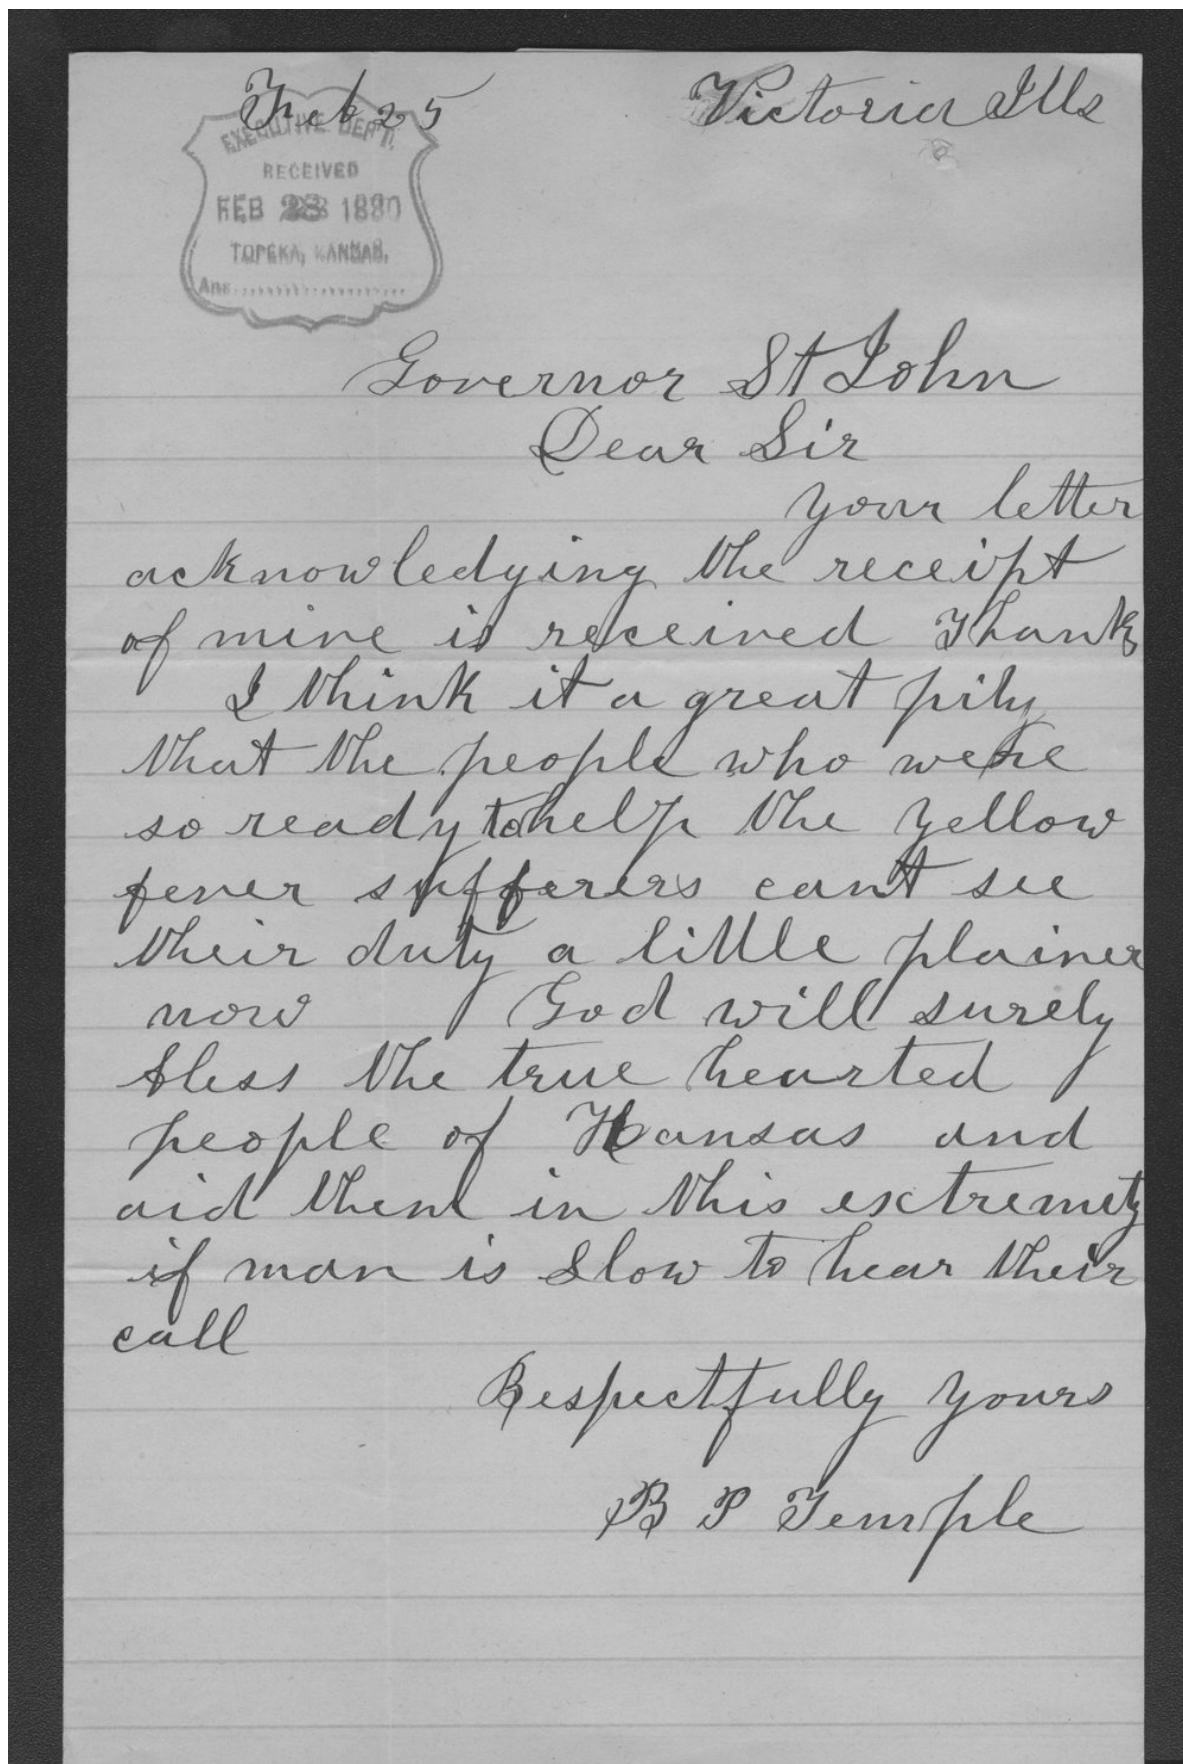 Feb 25 Victoria Ills
EXECUTIVE DEPT.
RECEIVED
FEB 28 1880
TOPEKA, KANSAS.
Ans....................
Governor St John
Dear Sir
your letter
acknowledgying the receipt
of mine is received Thanks
I think it a great pity
that the people who were
so ready to help the yellow
fever sufferers cant see
their duty a little plainer
now God will surely
bless the true hearted
people of Kansas and
aid them in this extremety
if man is slow to hear their
call
Respectfully yours
B P Temple